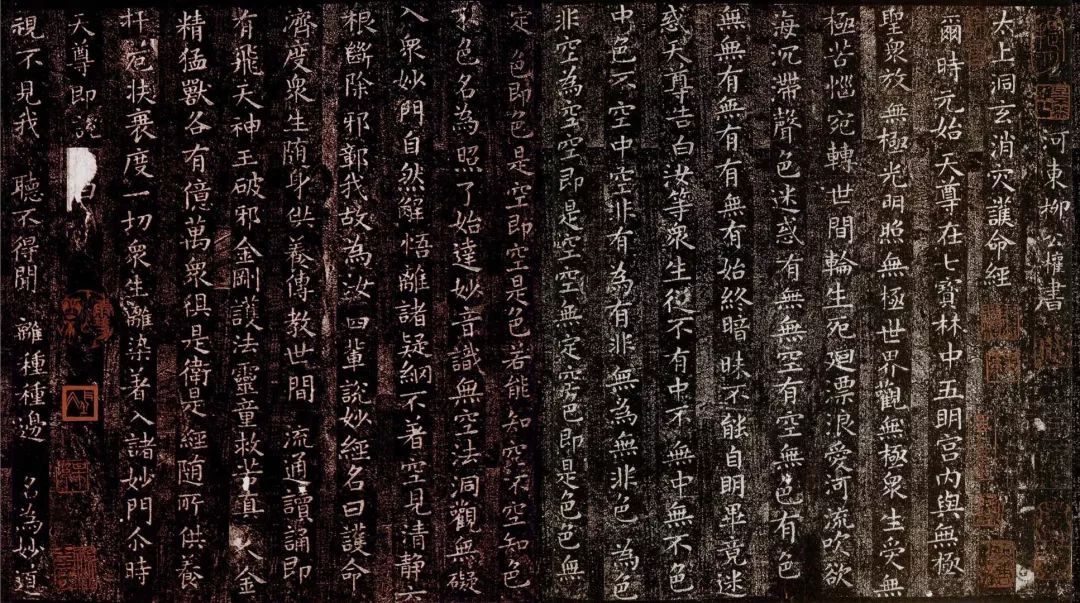 河東柳公權書
太上洞玄消灾護命經
爾時元始天尊在七寶林中五明宫内與無極
聖衆放無極光明照無極世界觀無極衆生受無
極苦惱宛轉世間輪生死迴漂浪愛河流吹欲
海沉滯聲色迷惑有無無空有空無色有色
無無有無有有無有始終暗昧不能自明畢竟迷
惑天尊告曰汝等衆生從不有中不無中無不色
中色不空中空非有為有非無為無非色為色
非空為空空即是空空無定空色即是色色無
定色即色是空即空是色若能知空不空知色
不色名為照了始達妙音識無空法洞觀無礙
入衆妙門自然解悟離諸疑網不著空見清静六
根斷除邪鄣我故為汝四輩說妙經名曰護命
濟度衆生随身供養傳教世間 流通讀誦即
有飛天神王破邪金剛護法靈童救苦真人金
精猛獸各有億萬衆俱是衛是經随所供養
扞厄扶衰度一切衆生離染著入諸妙門尒時
天尊即說 曰
視不見我 聽不得聞 離種種邊 名為妙道